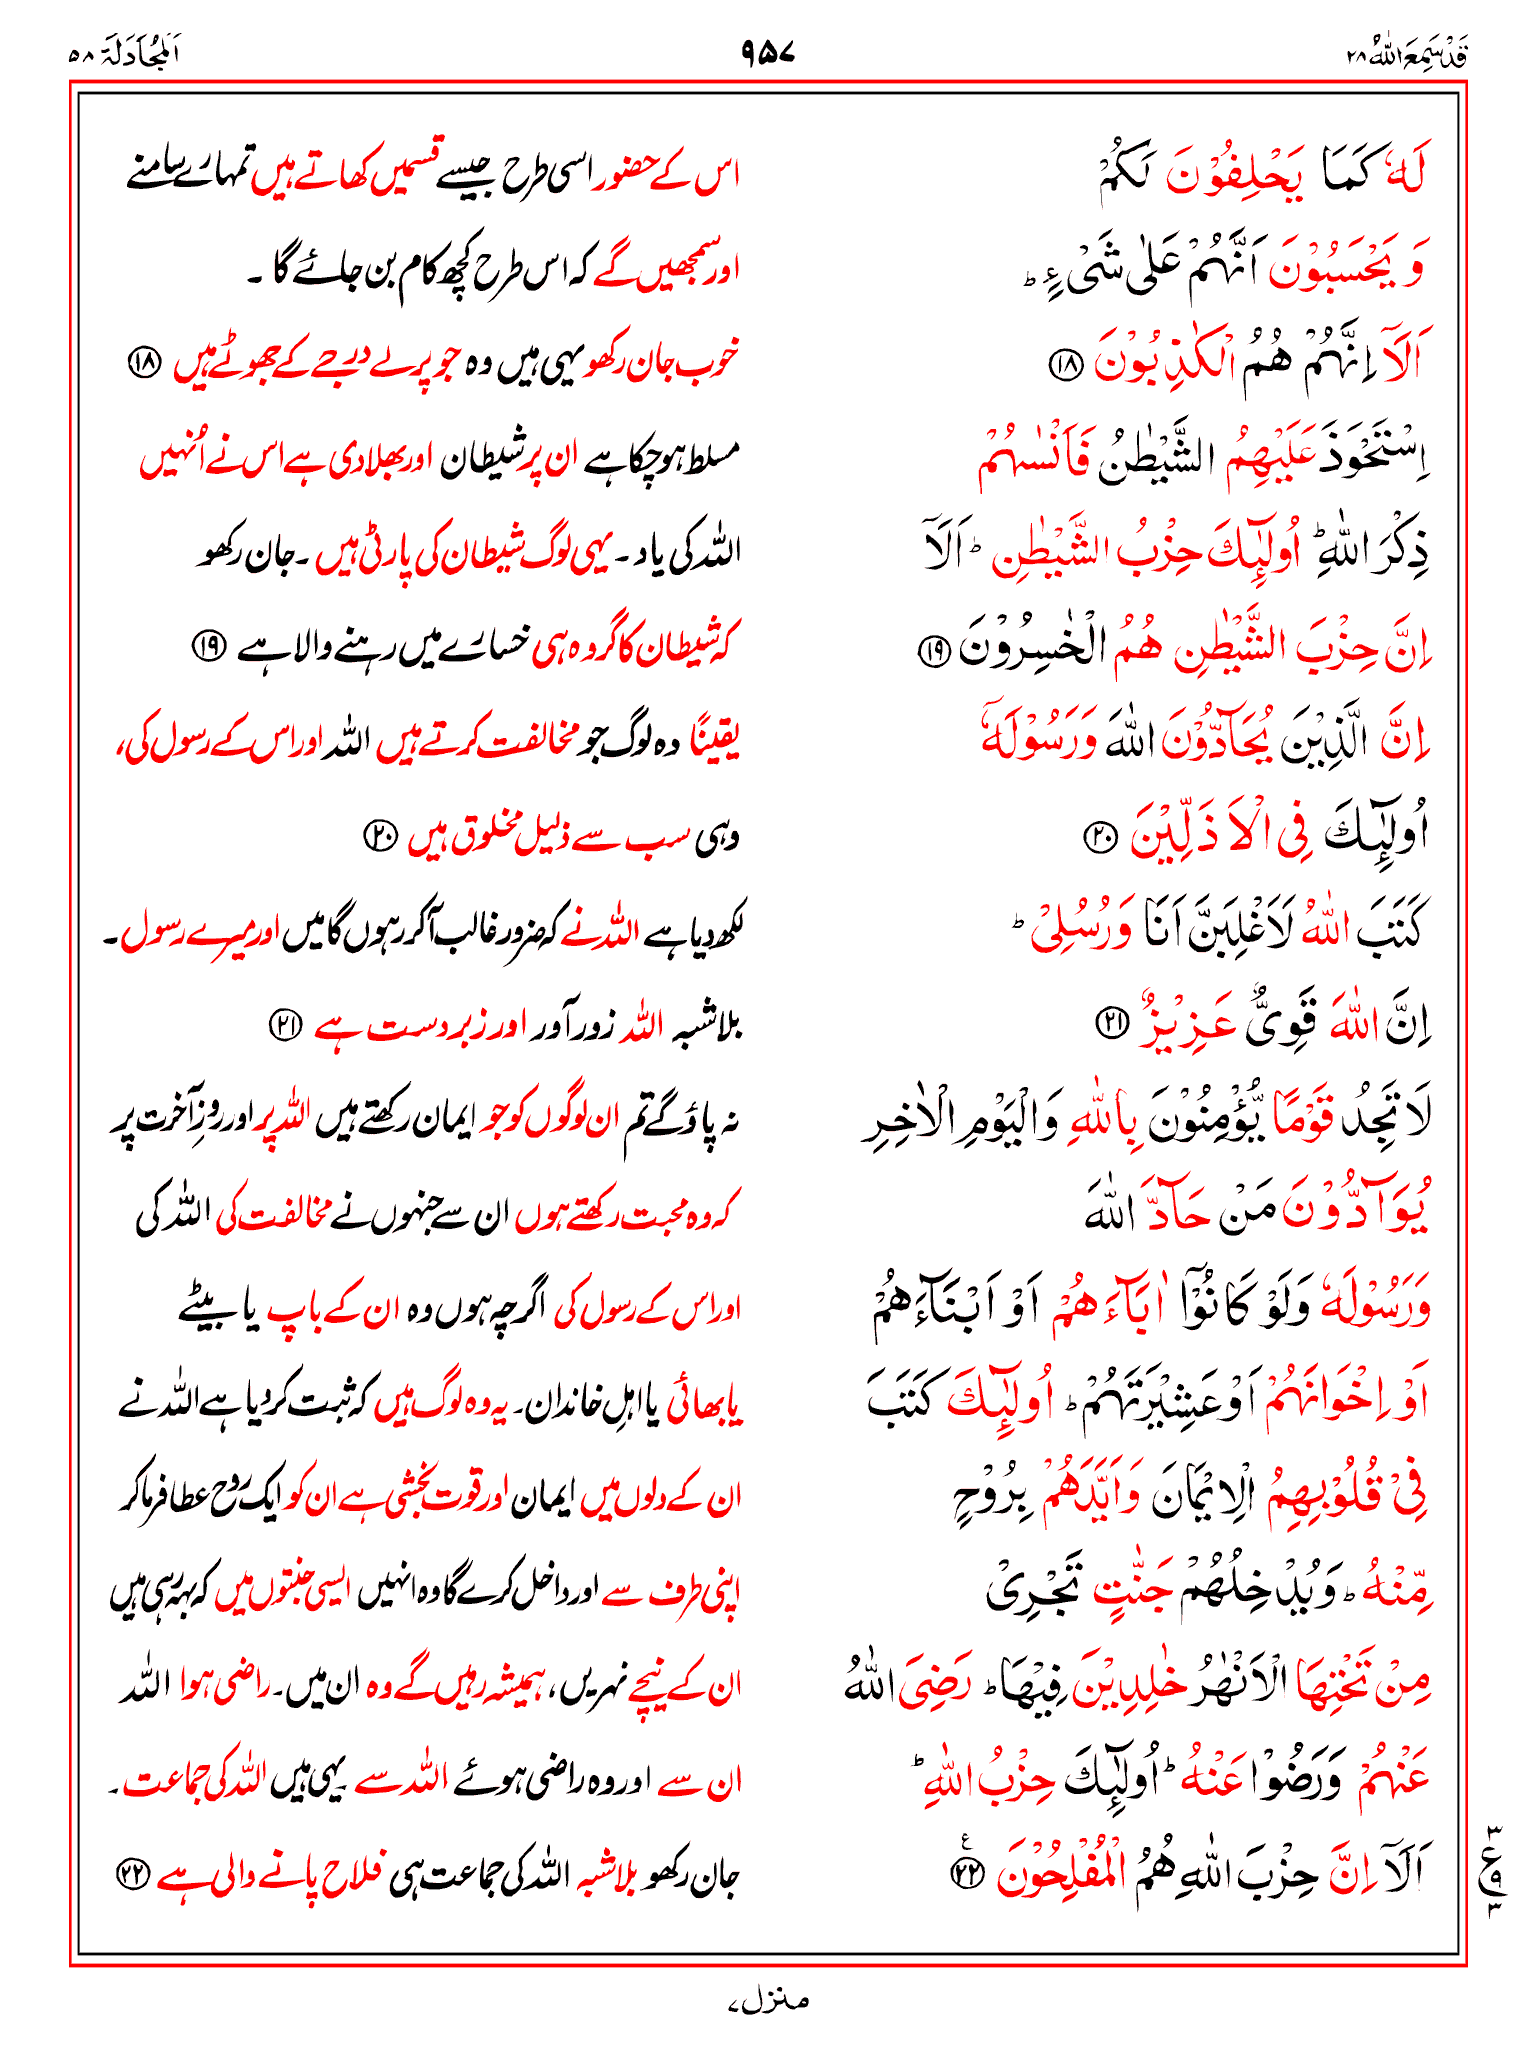 قَدْ سَمِعَ اللهُ ۲۸ ۹۵۷ اَلْمُجَادَلَة ۵۸
لَهٗ كَمَا يَحْلِفُوْنَ لَكُمْ اس کے حضور اسی طرح جیسے قسمیں کھاتے ہیں تمہارے سامنے
وَ يَحْسَبُوْنَ اَنَّهُمْ عَلٰى شَىْءٍ ؕ اور سمجھیں گے کہ اس طرح کچھ کام بن جائے گا ۔
اَلَآ اِنَّهُمْ هُمُ الْكٰذِبُوْنَ ۱۸ خوب جان رکھو یہی ہیں وہ جو پرلے درجے کے جھوٹے ہیں ۱۸
اِسْتَحْوَذَ عَلَيْهِمُ الشَّيْطٰنُ فَاَنْسٰىهُمْ مسلط ہو چکا ہے ان پر شیطان اور بھلا دی ہے اس نے اُنہیں
ذِكْرَ اللهِ ؕ اُولٰٓئِكَ حِزْبُ الشَّيْطٰنِ ؕ اَلَآ اللہ کی یاد ۔ یہی لوگ شیطان کی پارٹی ہیں ۔ جان رکھو
اِنَّ حِزْبَ الشَّيْطٰنِ هُمُ الْخٰسِرُوْنَ ۱۹ کہ شیطان کا گروہ ہی خسارے میں رہنے والا ہے ۱۹
اِنَّ الَّذِيْنَ يُحَآدُّوْنَ اللهَ وَرَسُوْلَهٗٓ یقینًا وہ لوگ جو مخالفت کرتے ہیں اللہ اور اس کے رسول کی،
اُولٰٓئِكَ فِى الْاَذَلِّيْنَ ۲۰ وہی سب سے ذلیل مخلوق ہیں ۲۰
كَتَبَ اللهُ لَاَغْلِبَنَّ اَنَا وَرُسُلِىْ ؕ لکھ دیا ہے اللہ نے کہ ضرور غالب آکر رہوں گا میں اور میرے رسول ۔
اِنَّ اللهَ قَوِىٌّ عَزِيْزٌ ۲۱ بلاشبہ اللہ زور آور اور زبردست ہے ۲۱
لَا تَجِدُ قَوْمًا يُّؤْمِنُوْنَ بِاللهِ وَالْيَوْمِ الْاٰخِرِ نہ پاؤ گے تم ان لوگوں کو جو ایمان رکھتے ہیں اللہ پر اور روزِ آخرت پر
يُوَآدُّوْنَ مَنْ حَآدَّ اللهَ کہ وہ محبت رکھتے ہوں ان سے جنہوں نے مخالفت کی اللہ کی
وَرَسُوْلَهٗ وَلَوْ كَانُوْٓا اٰبَآءَهُمْ اَوْ اَبْنَآءَهُمْ اور اس کے رسول کی اگرچہ ہوں وہ ان کے باپ یا بیٹے
اَوْ اِخْوَانَهُمْ اَوْ عَشِيْرَتَهُمْ ؕ اُولٰٓئِكَ كَتَبَ یا بھائی یا اہلِ خاندان ۔ یہ وہ لوگ ہیں کہ ثبت کر دیا ہے اللہ نے
فِىْ قُلُوْبِهِمُ الْاِيْمَانَ وَاَيَّدَهُمْ بِرُوْحٍ ان کے دلوں میں ایمان اور قوت بخشی ہے ان کو ایک روح عطا فرما کر
مِّنْهُ ؕ وَيُدْخِلُهُمْ جَنّٰتٍ تَجْرِىْ اپنی طرف سے اور داخل کرے گا وہ انہیں ایسی جنتوں میں کہ بہہ رہی ہیں
مِنْ تَحْتِهَا الْاَنْهٰرُ خٰلِدِيْنَ فِيْهَا ؕ رَضِىَ اللهُ ان کے نیچے نہریں، ہمیشہ رہیں گے وہ ان میں ۔ راضی ہوا اللہ
عَنْهُمْ وَرَضُوْا عَنْهُ ؕ اُولٰٓئِكَ حِزْبُ اللهِ ؕ ان سے اور وہ راضی ہوئے اللہ سے ۔ یہی ہیں اللہ کی جماعت ۔
اَلَآ اِنَّ حِزْبَ اللهِ هُمُ الْمُفْلِحُوْنَ ۲۲ ع جان رکھو بلاشبہ اللہ کی جماعت ہی فلاح پانے والی ہے ۲۲
۳
ع ۹
۳
منزل ۷